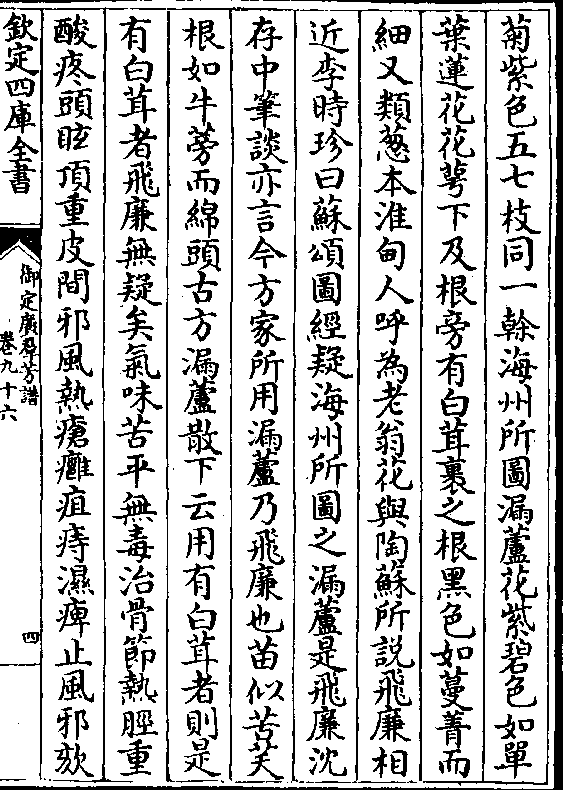 菊紫色五七枝同一幹海州所圖漏蘆花紫碧色如單
葉蓮花花萼下及根旁有白茸裹之根黑色如蔓菁而
細又類葱本淮甸人呼為老翁花與陶蘇所説飛廉相
近李時珍曰蘇頌圖經疑海州所圖之漏蘆是飛廉沈
存中筆談亦言今方家所用漏蘆乃飛廉也苗似苦芺
根如牛蒡而綿頭古方漏蘆散下云用有白茸者則是
有白茸者飛廉無疑矣氣味苦平無毒治骨節熱脛重
酸疼頭眩頂重皮間邪風熱瘡癰疽痔濕痺止風邪欬
欽定四庫全書
御定廣羣芳譜
卷九十六
四